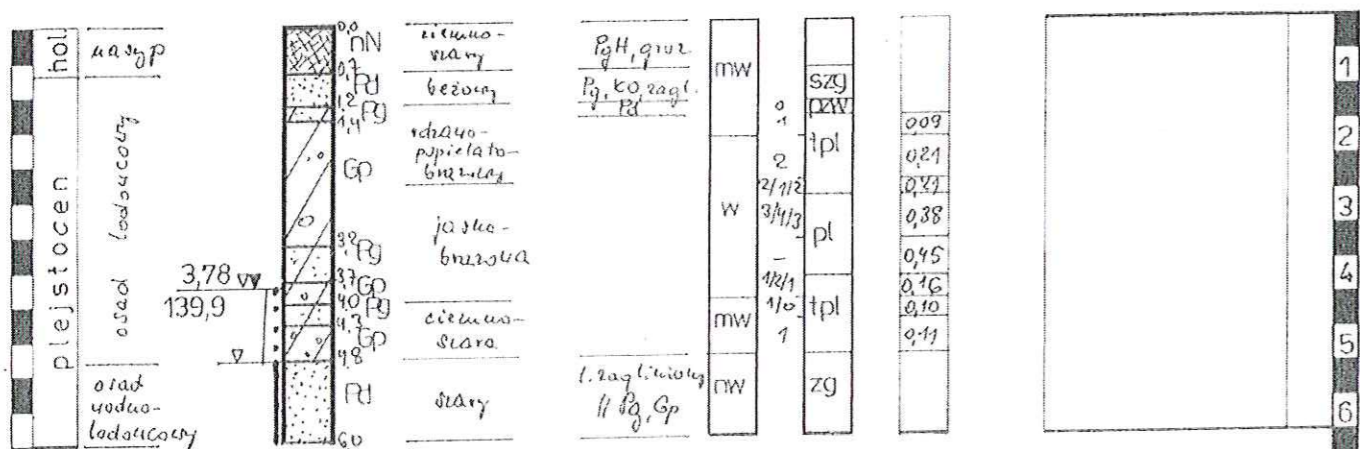 hol
plejstocen
nasyp
osad lodowcowy
osad
wodno-
lodowcowy
3,78
139,9
0,0
nN
0,7
Pd
1,2
Pg
1,4
Gp
3,2
Pg
3,7
Gp
4,0
Pg
4,3
Gp
4,8
Pd
6,0
ciemno-
szary
beżowy
rdzawo-
popielato-
brązowy
jasno-
brązowa
ciemno-
szara
szary
PgH, gruz
Pg, KO, zagl.
Pd
// Pg, Gp
mw
w
mw
nw
0
1
2
2/1/2
3/4/3
–
1/2/1
1/0
1
szg
pzw
tpl
pl
tpl
zg
0,09
0,21
0,21
0,38
0,45
0,16
0,10
0,11
1
2
3
4
5
6